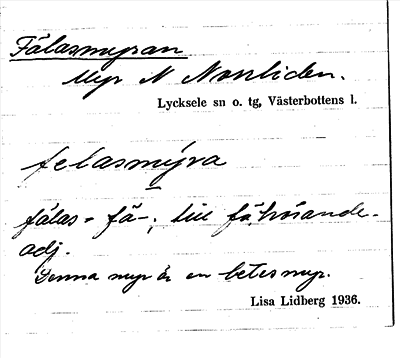 Fälasmyran
Myr N Norrliden.
Lycksele sn o. tg, Västerbottens l.
felasmýra
fälas- fä-; till fä,
adj.
Denna myr är en betesmyr.
Lisa Lidberg 1936.